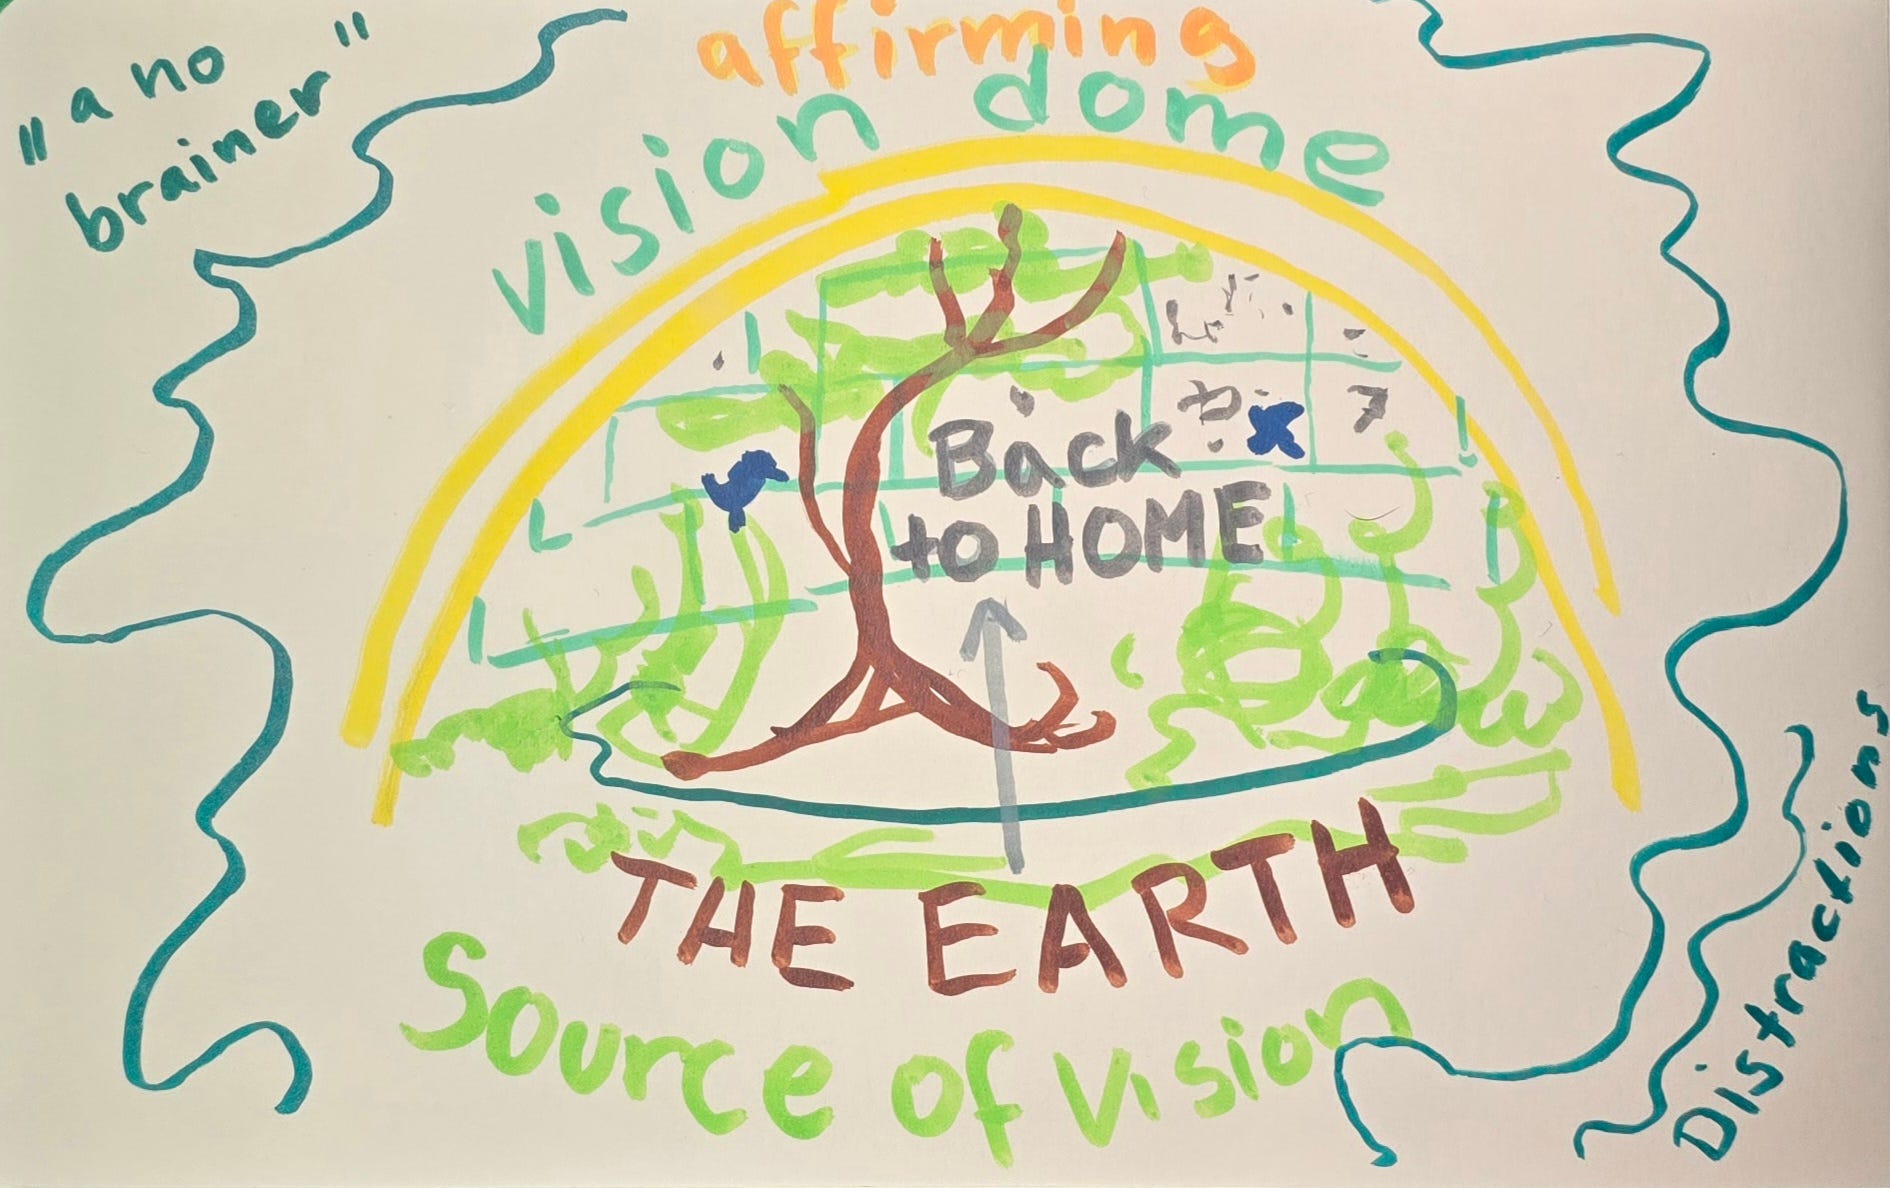 "a no
brainer"
affirming
vision dome
Back
to HOME
THE EARTH
Source of Vision
Distractions